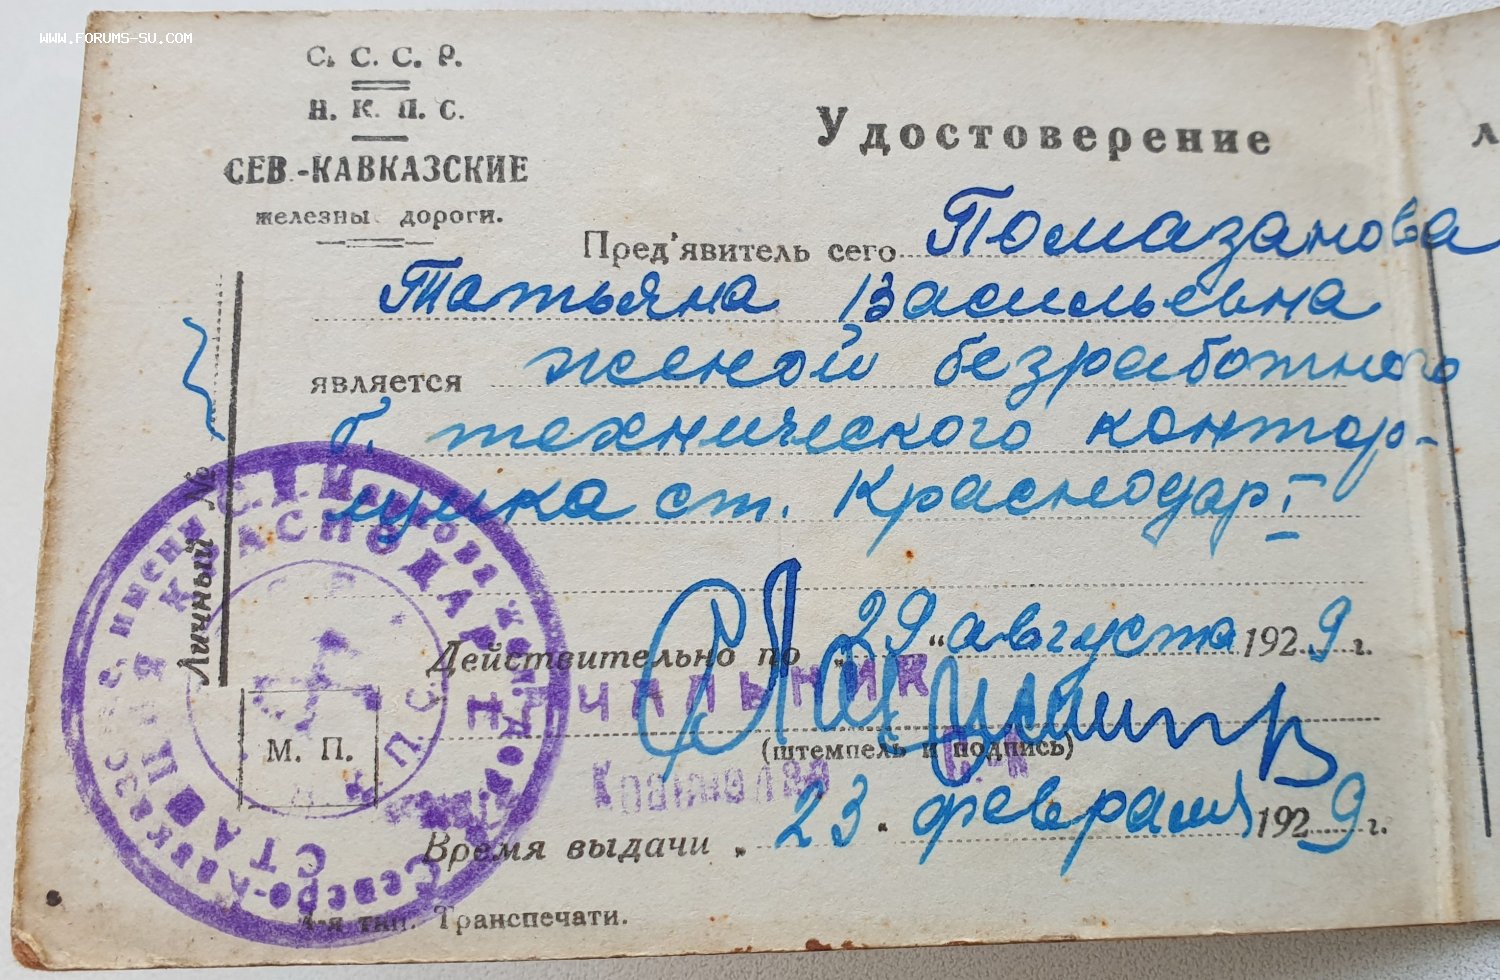 WWW.FORUMS-SU.COM
С. С. С. Р.
Н. К. П. С.
СЕВ.-КАВКАЗСКИЕ
железны дороги.
Удостоверение
Пред'явитель сего Помазанова
Татьяна Васильевна
является женой безработного
б. технического контор-
щика ст. Краснодар I
Личный №
Действительно по „29“ августа 1929 г.
НАЧАЛЬНИК
(штемпель и подпись)
М. П.
Время выдачи „23. февраля 1929 г.
4-я тип. Транспечати.
Северо-Кавказс имени железн дор
СТАНЦИЯ КРАСНОДАР I
С.С.С.Р.
Н.К.П.С.